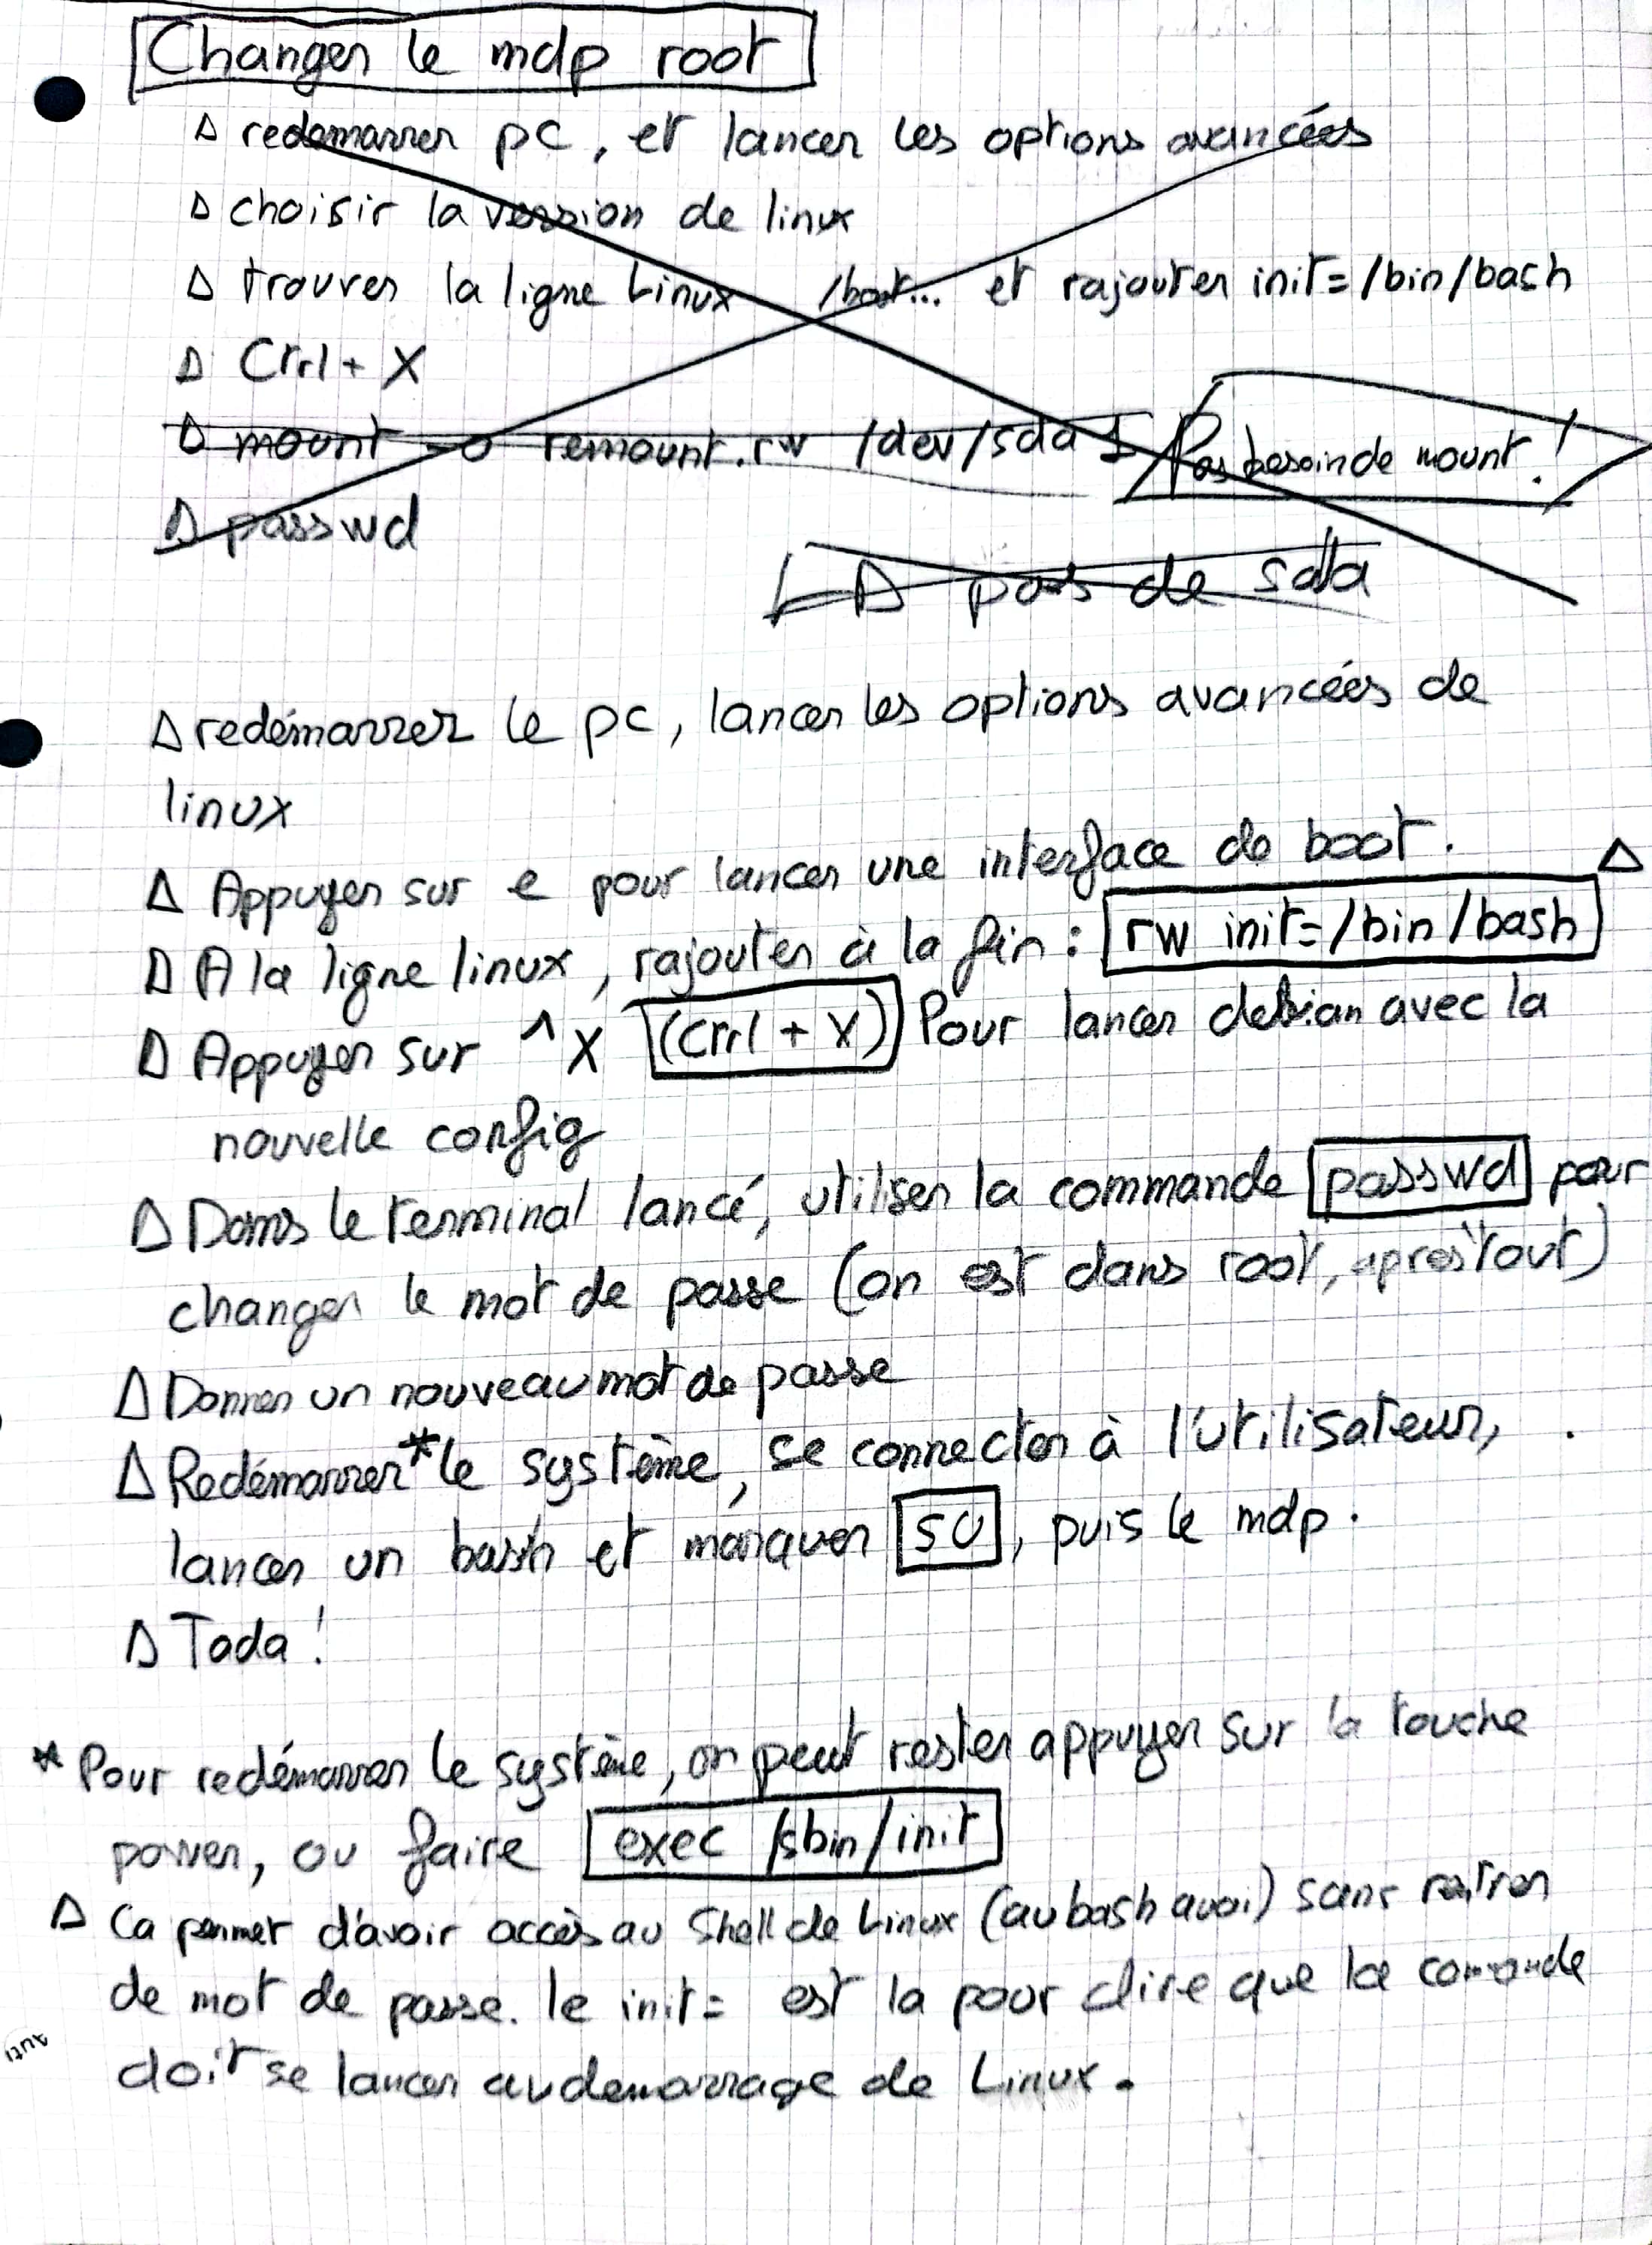 Changer le mdp root
Δ redemarrer pc, et lancer les options avancées
Δ choisir la version de linux
Δ trouver la ligne Linux /boot... et rajouter init=/bin/bash
Δ Ctrl + X
Δ mount -o remount.rw /dev/sda1 Pas besoin de mount !
Δ passwd
↳ Δ pas de sda
Δ redémarrer le pc, lancer les options avancées de
linux
Δ Appuyer sur e pour lancer une interface de boot.
Δ A la ligne linux, rajouter à la fin : rw init=/bin/bash Δ
Δ Appuyer sur ^X (Ctrl + X) Pour lancer debian avec la
nouvelle config
Δ Dans le terminal lancé, utiliser la commande passwd pour
changer le mot de passe (on est dans root, apres tout)
Δ Donner un nouveau mot de passe
Δ Redémarrer* le système, se connecter à l'utilisateur,
lancer un bash et marquer su, puis le mdp.
Δ Tada !
* Pour redémarrer le système, on peut rester appuyer sur la touche
power, ou faire exec /sbin/init
Δ Ca permet d'avoir accès au Shell de Linux (au bash quoi) sans rentrer
de mot de passe. le init= est la pour dire que la commande
doit se lancer au demarrage de Linux.